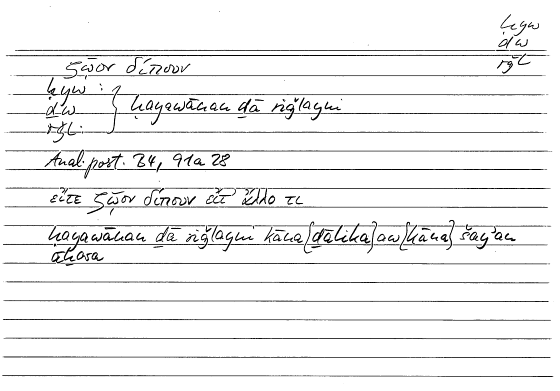 ḥyw
ḏw
rǧl
ζῷον δίπουν
ḥyw :
ḏw
rǧl :
} ḥayawānan ḏā riǧlayni
Anal. post. B4, 91a 28
εἴτε ζῷον δίπουν εἴτ' ἄλλο τι
ḥayawānan ḏā riǧlayni kāna {ḏālika} aw {kāna} šayʾan
āḫara